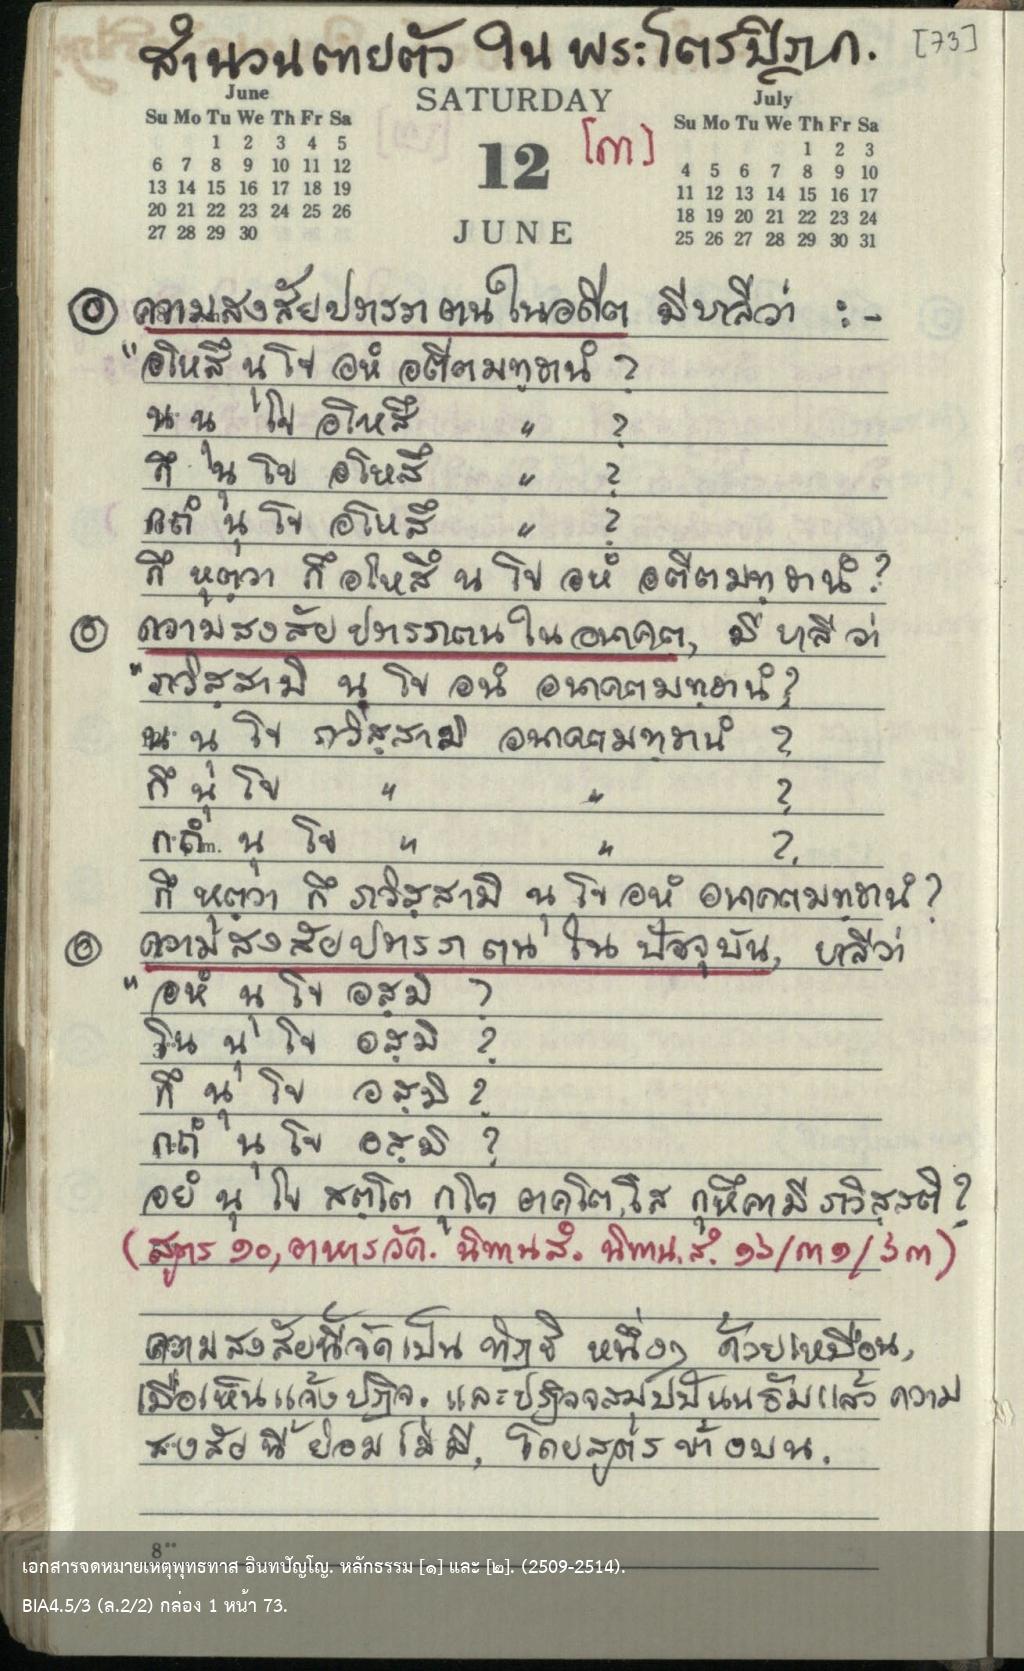 สำนวนตายตัว ใน พระไตรปิฎก. [73]
June SATURDAY July
Su Mo Tu We Th Fr Sa 12 [๓] Su Mo Tu We Th Fr Sa
1 2 3 4 5 1 2 3
6 7 8 9 10 11 12 4 5 6 7 8 9 10
13 14 15 16 17 18 19 11 12 13 14 15 16 17
20 21 22 23 24 25 26 JUNE 18 19 20 21 22 23 24
27 28 29 30 25 26 27 28 29 30 31
๑ ความสงสัยปรารภ ตน ในอดีต มีบาลีว่า :-
"อโหสึ นุ โข อหํ อตีตมทฺธานํ ?
น นุ โข อโหสึ " ?
กึ นุ โข อโหสึ " ?
กถํ นุ โข อโหสึ " ?
กึ หุตฺวา กึ อโหสึ นุ โข อหํ อตีตมทฺธานํ ?
๒ ความสงสัย ปรารภตน ใน อนาคต, มี บาลี ว่า
"ภวิสฺสามิ นุ โข อหํ อนาคตมทฺธานํ ?
น นุ โข ภวิสฺสามิ อนาคตมทฺธานํ ?
กึ นุ โข " " ?
กถํ นุ โข " " ?
กึ หุตฺวา กึ ภวิสฺสามิ นุ โข อหํ อนาคตมทฺธานํ ?
๓ ความสงสัยปรารภ ตน ใน ปัจจุบัน, บาลีว่า
" อหํ นุ โข อสฺมิ ?
โน นุ โข อสฺมิ ?
กึ นุ โข อสฺมิ ?
กถํ นุ โข อสฺมิ ?
อยํ นุ โข สตฺโต กุโต อาคโต, โส กุหึคามี ภวิสฺสติ ?
(สูตร ๑๐, อาหารวัค. นิทานสํ. นิทาน.สํ. ๑๖/๓๑/๖๓)
ความสงสัยนี้จัดเป็น ทิฏฐิ หนึ่งๆ ด้วยเหมือน,
เมื่อเห็นแจ้งปฏิจ. และปฏิจจสมุปปันนธัมแล้ว ความ
สงสัย นี้ ย่อม ไม่มี, โดยสูตร ข้างบน.
8
เอกสารจดหมายเหตุพุทธทาส อินทปัญโญ. หลักธรรม [๑] และ [๒]. (2509-2514).
BIA4.5/3 (ล.2/2) กล่อง 1 หน้า 73.